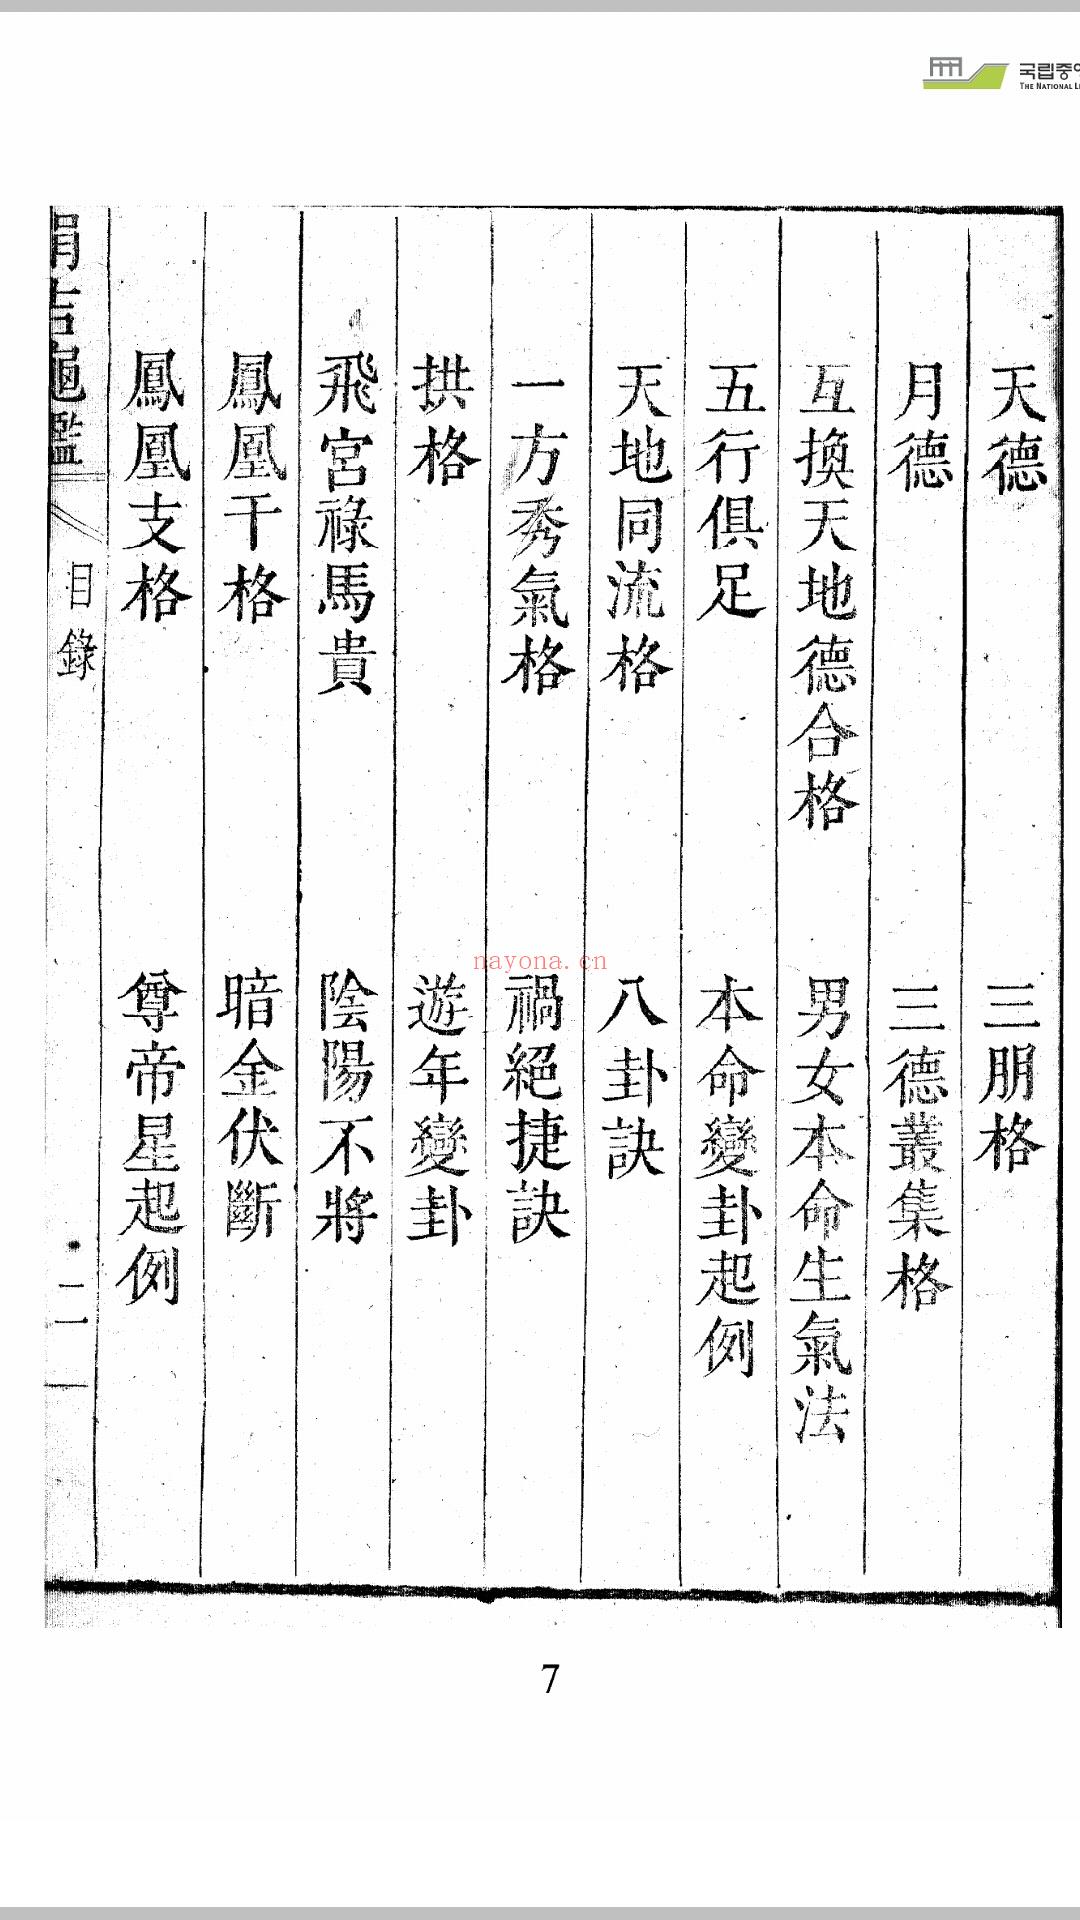 국립중앙
THE NATIONAL LI
天德
三朋格
月德
三德叢集格
互換天地德合格
男女本命生氣法
五行俱足
本命變卦起例
天地同流格
八卦訣
一方秀氣格
禍絕捷訣
拱格
遊年變卦
飛宮祿馬貴
陰陽不將
鳳凰干格
暗金伏斷
鳳凰支格
尊帝星起例
涓吉龜鑑
目錄
二
nayona.cn
7